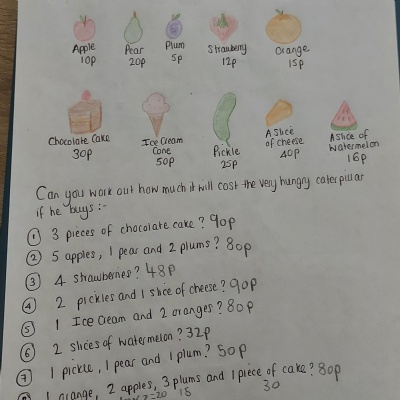 Apple Pear Plum Strawberry Orange
10p 20p 5p 12p 15p
Chocolate Cake Ice Cream Cone Pickle A Slice of cheese A Slice of Watermelon
30p 50p 25p 40p 16p
Can you work out how much it will cost the very hungry caterpillar
if he buys:-
1 3 pieces of chocolate cake? 90p
2 5 apples, 1 pear and 2 plums? 80p
3 4 strawberries? 48p
4 2 pickles and 1 slice of cheese? 90p
5 1 Ice Cream and 2 oranges? 80p
6 2 slices of watermelon? 32p
7 1 pickle, 1 pear and 1 plum? 50p
8 1 orange, 2 apples, 3 plums and 1 piece of cake? 80p
=20 15 30